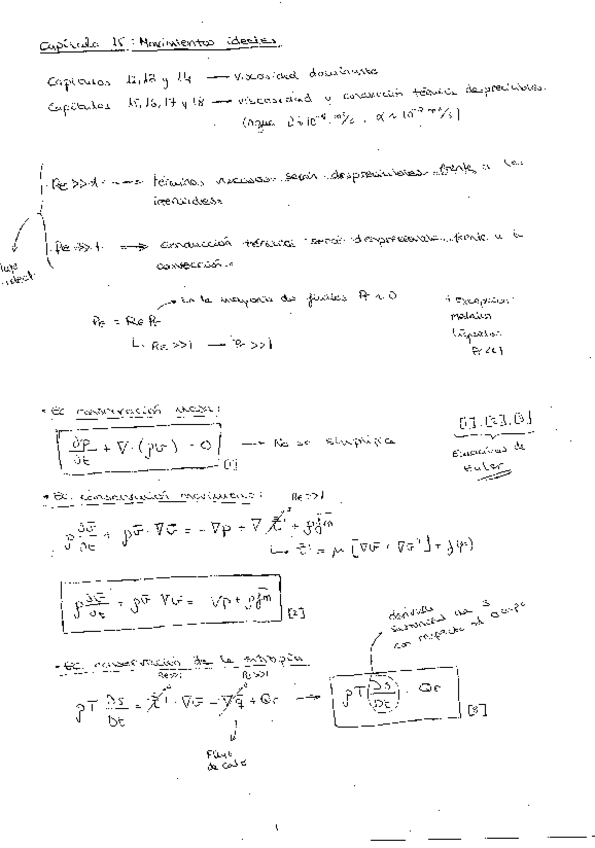 Capítulo 15: Movimientos ideales
Capítulos 12, 13 y 14 → viscosidad dominante
Capítulos 15, 16, 17 y 18 → viscosidad y conducción térmica despreciables.
(Agua
Re >> 1 → términos viscosos serán despreciables frente a los
Pe >> 1 → conducción térmica será despreciable frente a la
convección.
Flujo
ideal
En la mayoría de fluidos
Pe = Re Pr
Re >> 1 → Pe >> 1
Excepción:
metales
líquidos
• Ec conservación masa:
∂ρ/∂t + ∇·(ρv̄) = 0 → No se simplifica
[1]
[1], [2], [3]
Ecuaciones de
Euler
• Ec. conservación movimiento: Re >> 1
ρ ∂v̄/∂t + ρv̄·∇v̄ = -∇p + ∇·τ̄' + ρf̄m
[2]
• Ec. conservación de la entropía
Re >> 1 Pe >> 1
ρT Ds/Dt = τ̄' : ∇v̄ - ∇·q̄ + Qr → ρT Ds/Dt = Qr
[3]
derivada
sustancial de s
con respecto al tiempo
Flujo
de calor
1